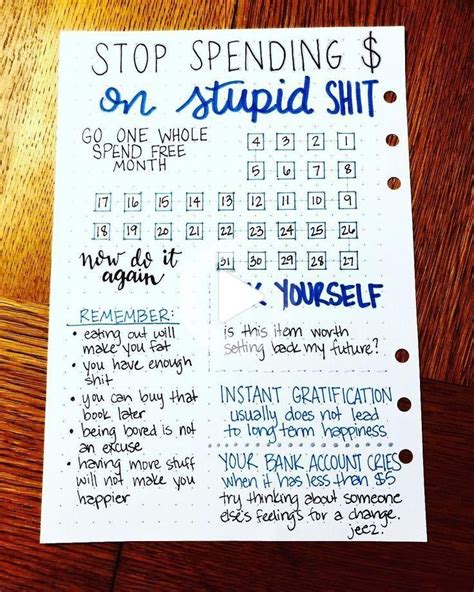 STOP SPENDING $
on stupid SHIT
GO ONE WHOLE
SPEND FREE
MONTH
4 3 2 1
5 6 7 8
17 16 15 14 13 12 11 10 9
18 19 20 21 22 23 24 25 26
31 30 29 28 27
now do it
again
REMEMBER:
• eating out will
make you fat
• you have enough
shit
• you can buy that
book later
• being bored is not
an excuse
• having more stuff
will not make you
happier
YOURSELF
is this item worth
setting back my future?
INSTANT GRATIFICATION
usually does not lead
to long term happiness
YOUR BANK ACCOUNT CRIES
when it has less than $5
try thinking about someone
else's feelings for a change.
jeez.